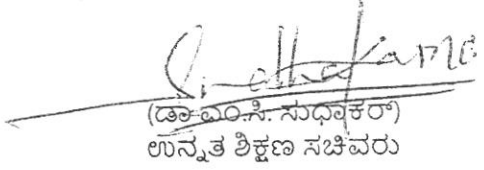 (ಡಾ ಎಂ.ಸಿ. ಸುಧಾಕರ್)
ಉನ್ನತ ಶಿಕ್ಷಣ ಸಚಿವರು